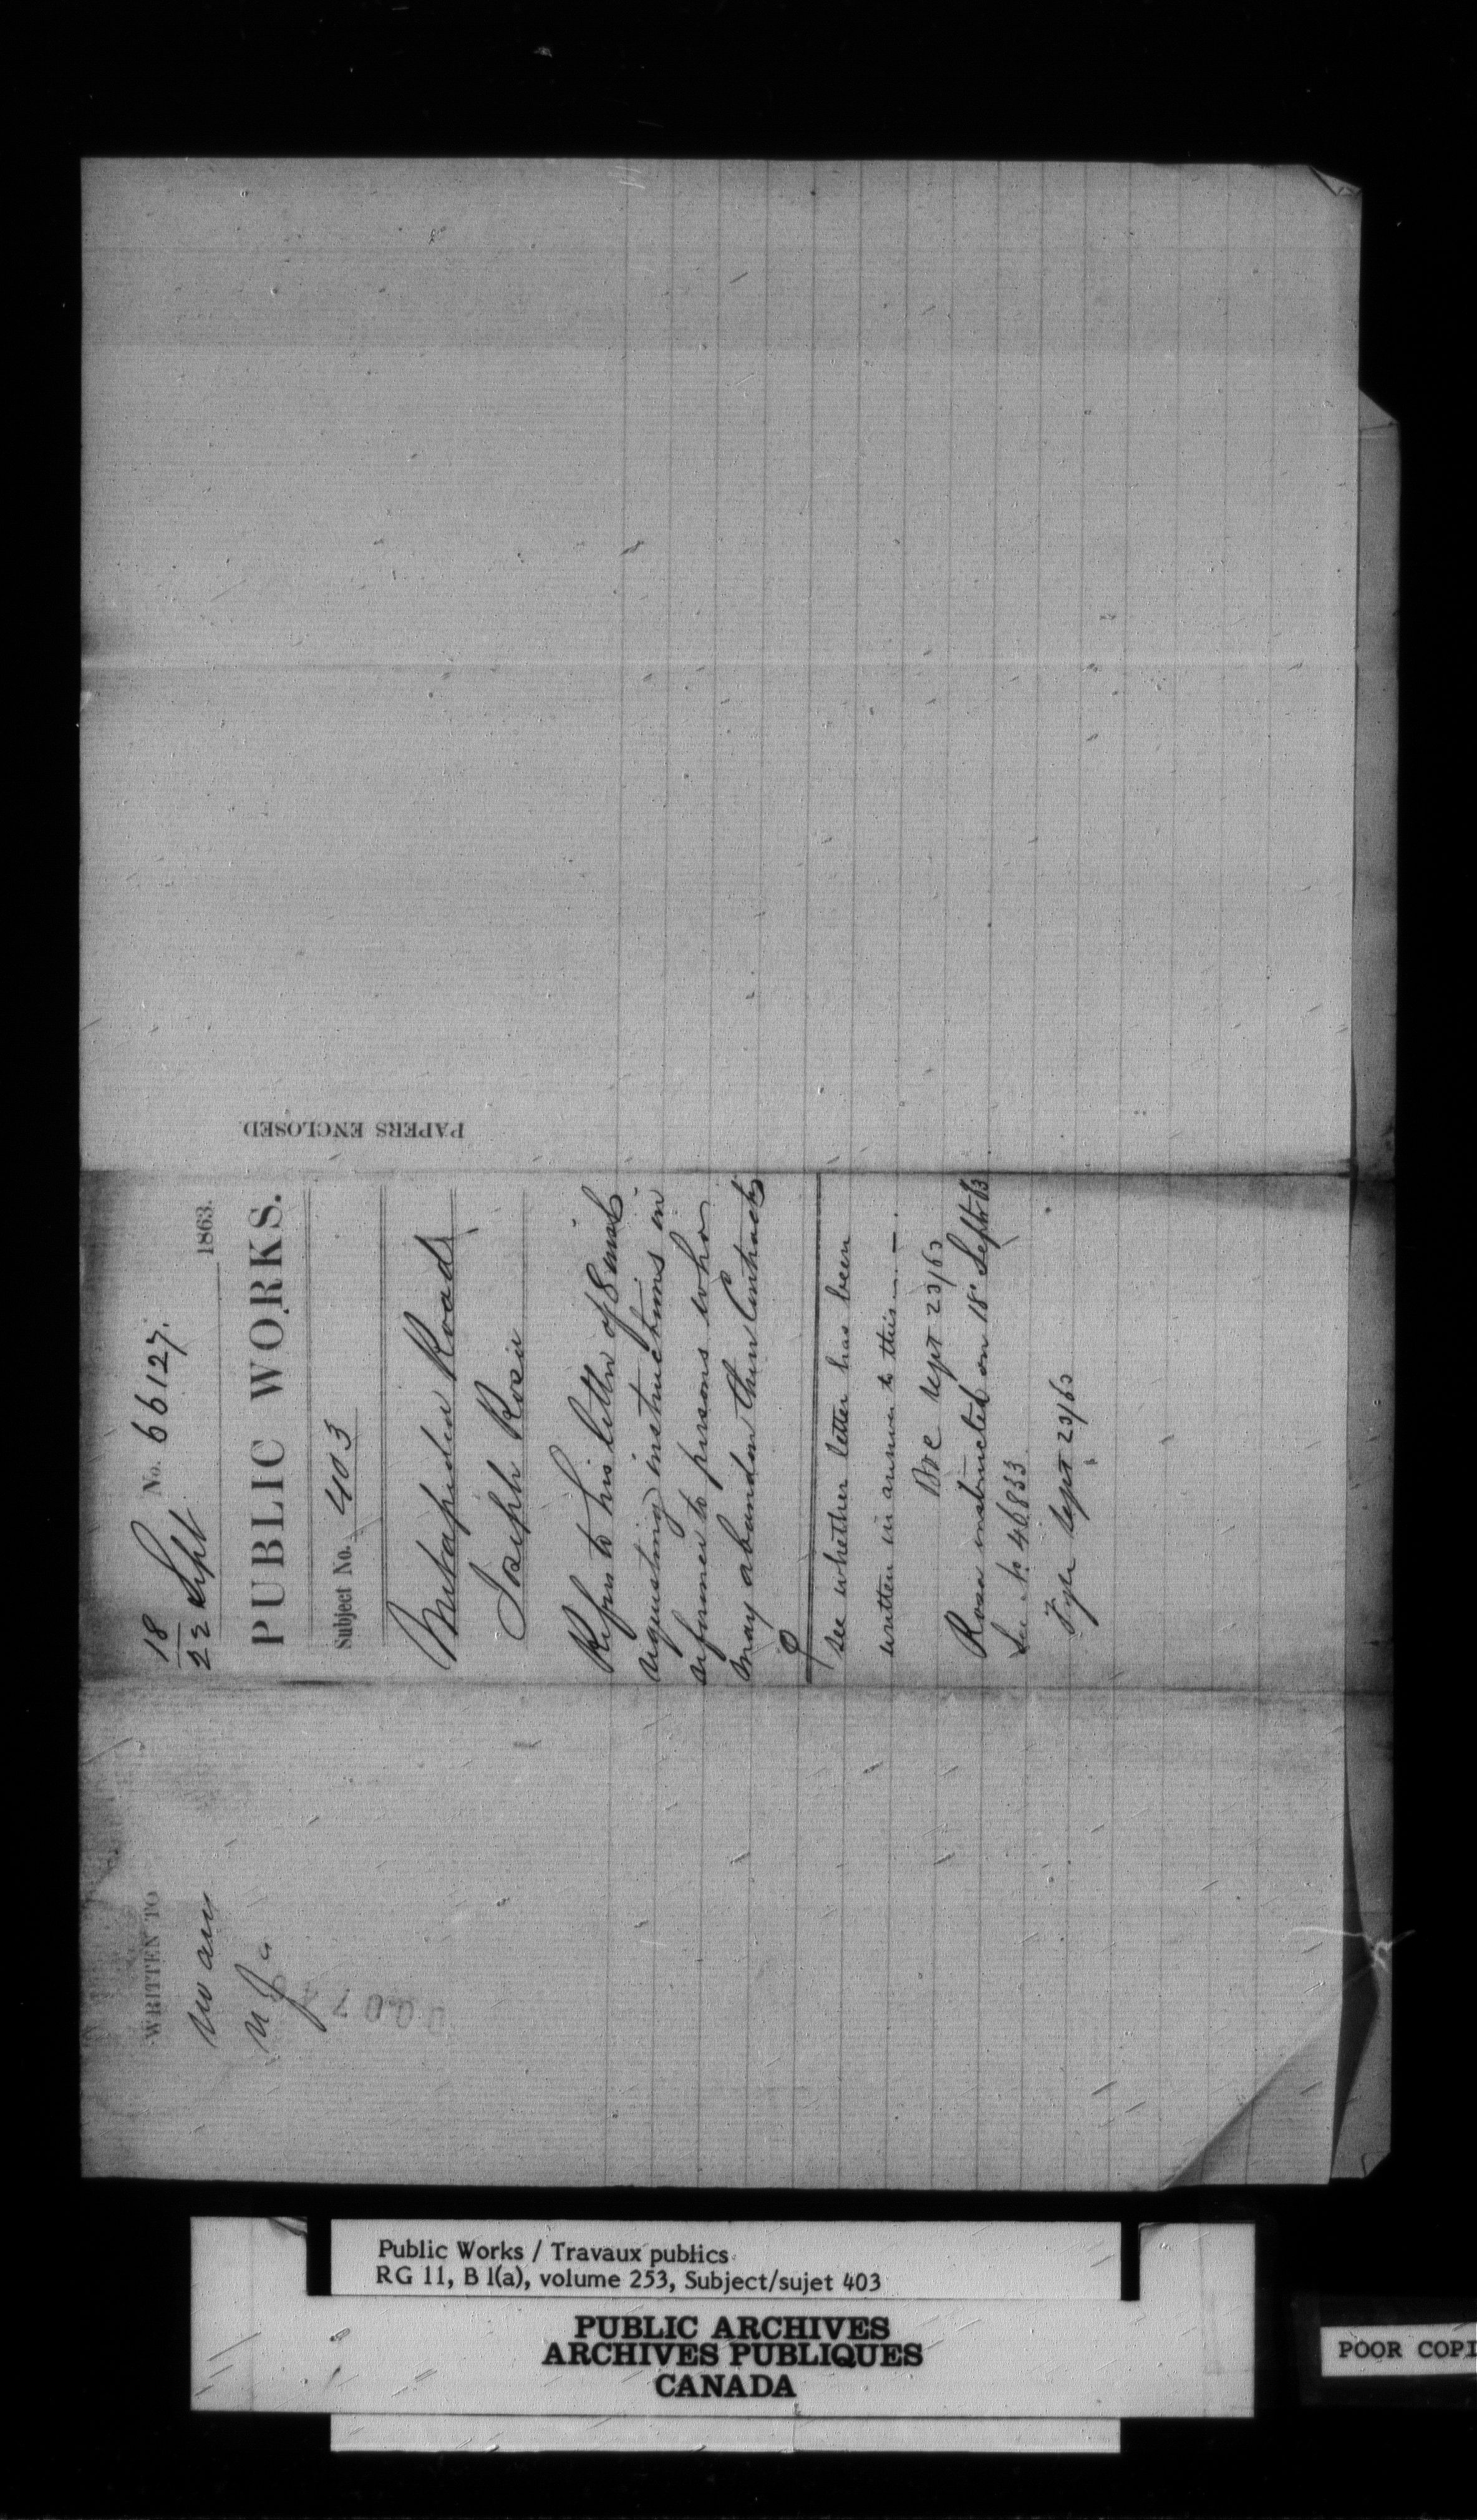 18
22 Sept No. 66127. 1863.
PUBLIC WORKS.
Subject No. 403
Metapedia Road
Joseph Rosa
Refers to his letter of 8 inst
requesting instructions in
reference to persons who
may abandon their Contracts
see whether letter has been
written in answer to this —
Sept 23/63
Rosa instructed on 18 Septr 63
See No 46833
Fyle Sept 23/63
PAPERS ENCLOSED
WRITTEN TO
Public Works / Travaux publics
RG 11, B 1(a), volume 253, Subject/sujet 403
PUBLIC ARCHIVES
ARCHIVES PUBLIQUES
CANADA
POOR COPI